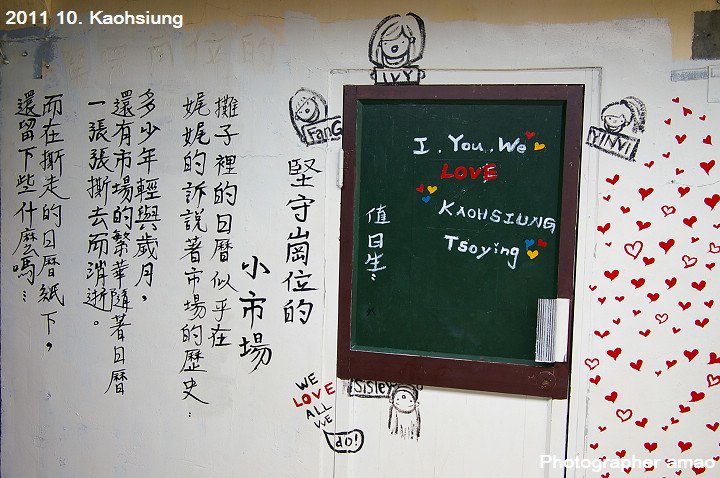 2011 10. Kaohsiung
IVY
FanG
I . You . We
LOVE
KAOHSIUNG
Tsoying
值日生:
堅守崗位的
小市場
攤子裡的日曆似乎在
娓娓的訴說著市場的歷史…
多少年輕與歲月，
還有市場的繁華隨著日曆
一張張撕去而消逝。
而在撕走的日曆紙下，
還留下些什麼嗎…
Sisley
WE
LOVE
ALL
WE
do!
Photographer amao